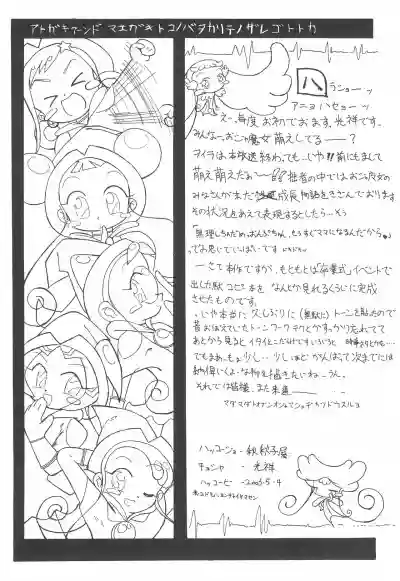 アトガキアーンド マエガキトコノバタカリテノザレゴトトカ
ハラショーッ
アニョハセョーッ
えー、毎度お初でおます。光祥です。
みんなーおジャ魔女萌えしてるー――?
ヲイラは本放送終わっても…いや!!前にもまして
萌え萌えだぁー 拙者の中ではおジャ魔女の
みなさんがまだ 成長物語をきざんでおります
その状況をあえて表現するとしたら…
「無理しちゃだめ おんぷちゃん、もうすぐママになるんだから。」
でお感じでいっぱいです
―さて本作ですが、もともとは「卒業式」イベントで
出した駄コピー本をなんとか見れるくらいに完成
させたものです。
いや本当に久しぶりに(無駄に)トーンを貼ったので
昔おぼえていたトーンワークテクとかすっかり忘れてて
あとから見るとイタイとこだらけです
でもまぁ、もょ少し…少しほどがんばって次までには
な物を描きたいねーうん。
それでは皆様、また来週――
ハッコーショ-銀杏子屋
キョシャ - 光祥
ハッコービー -2003.5.4